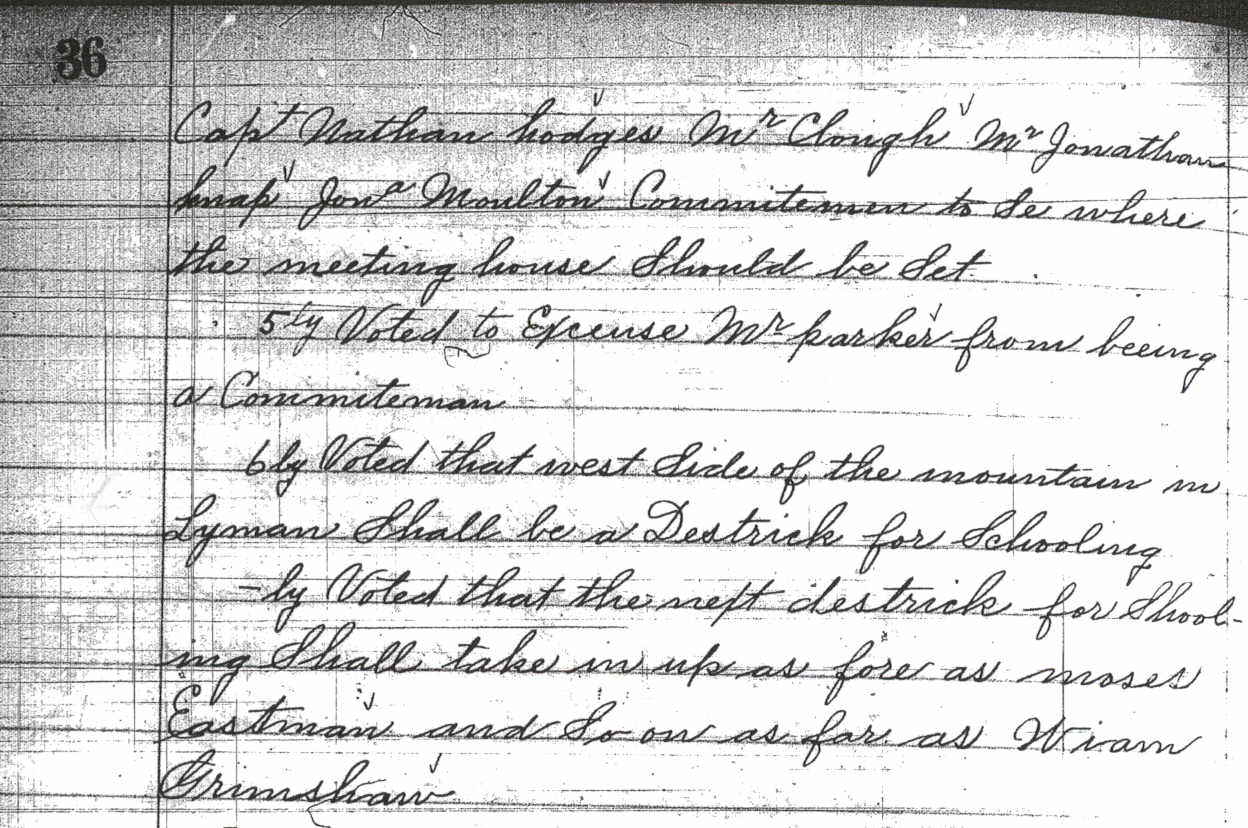 36
Capt Nathan hodges Mr Clough Mr Jonathan
knap Jona Moulton Commitemen to Se where
the meeting house Should be Set
5ly Voted to Excuse Mr parker from beeing
a Commiteman
6ly Voted that west Side of the mountain in
Lyman Shall be a Destrick for Schooling
-ly Voted that the next destrick for Shool-
ing Shall take in up as fore as moses
Eastman and So on as far as Wiam
Grimshaw